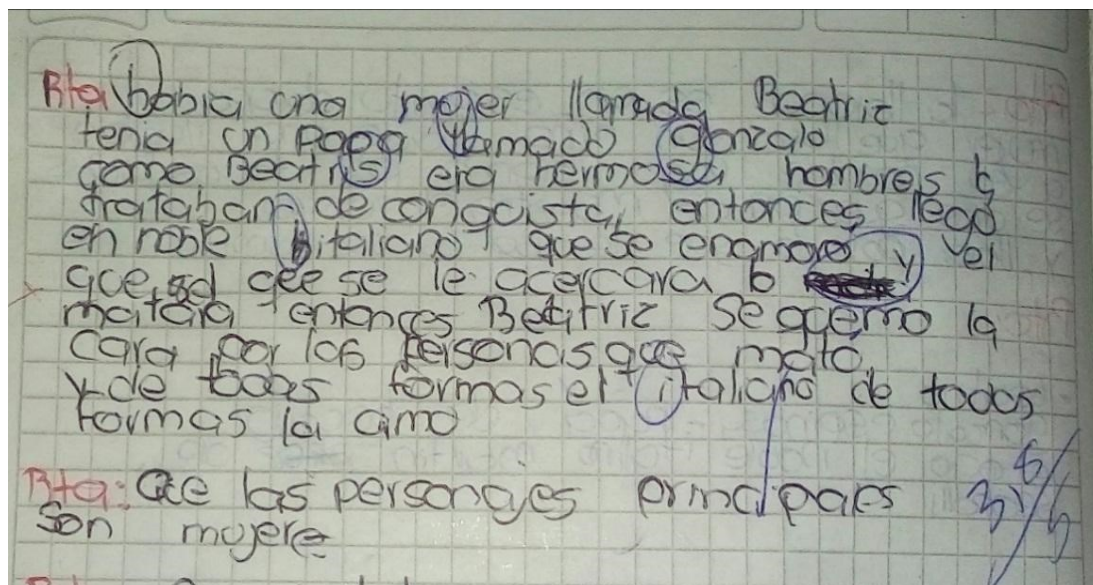 Rta habia una mojer llamada Beatriz
tenia un papa llamado gonzalo
como Beatris era hermosa hombres la
trataban de conqcista, entonces llego
en noble italiano que se enamoro y el
que see se le acercara lo
mataria entonces Beatriz se qcemo la
cara por las personas que mato.
y de todas formas el italiano de todas
formas la amo
Rta: Qce las personajes principaes
son mujere